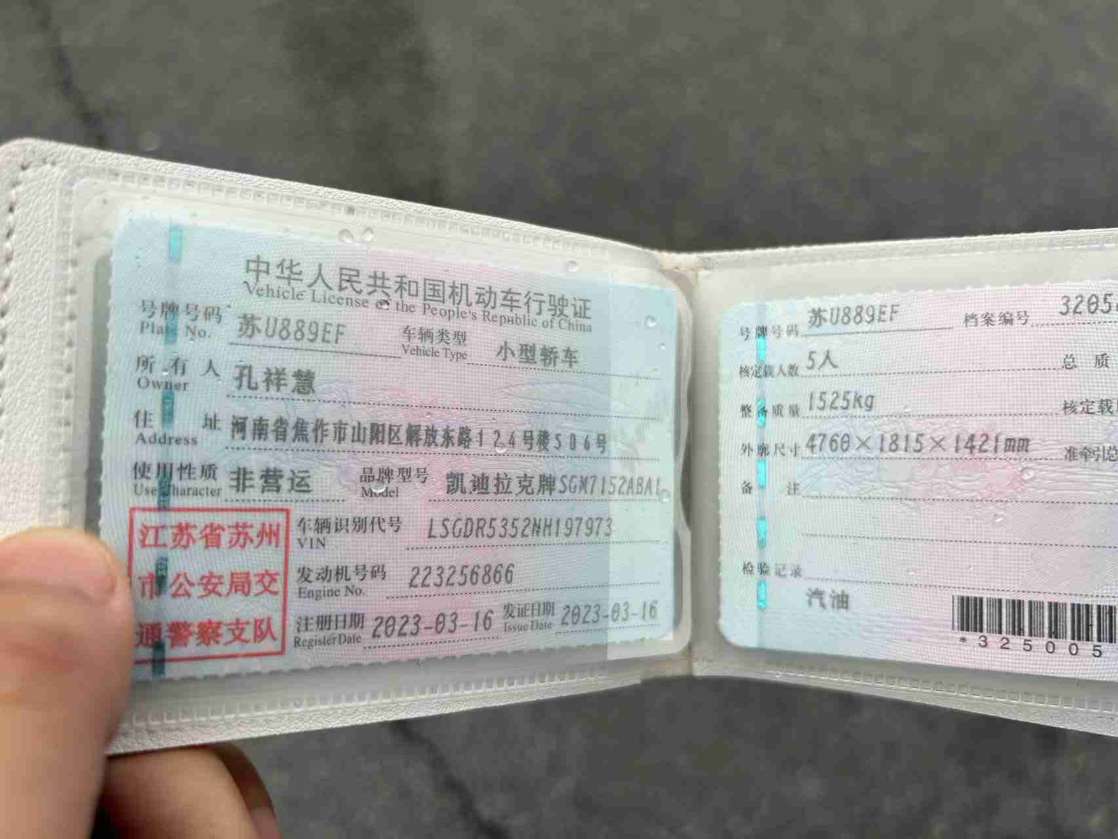 中华人民共和国机动车行驶证
Vehicle License of the People's Republic of China
号牌号码 苏U889EF 车辆类型 小型轿车
Plate No. Vehicle Type
所有人 孔祥慧
Owner
住址 河南省焦作市山阳区解放东路124号楼506号
Address
使用性质 非营运 品牌型号 凯迪拉克牌SGM7152ABA1
Use Character Model
江苏省苏州
市公安局交
通警察支队
车辆识别代号 LSGDR5352NH197973
VIN
发动机号码 223256866
Engine No.
注册日期 2023-03-16 发证日期 2023-03-16
Register Date Issue Date
号牌号码 苏U889EF 档案编号 3205
核定载人数 5人 总质
整备质量 1525kg 核定载
外廓尺寸 4760×1815×1421mm 准牵引总
备注
检验记录
汽油
*325005